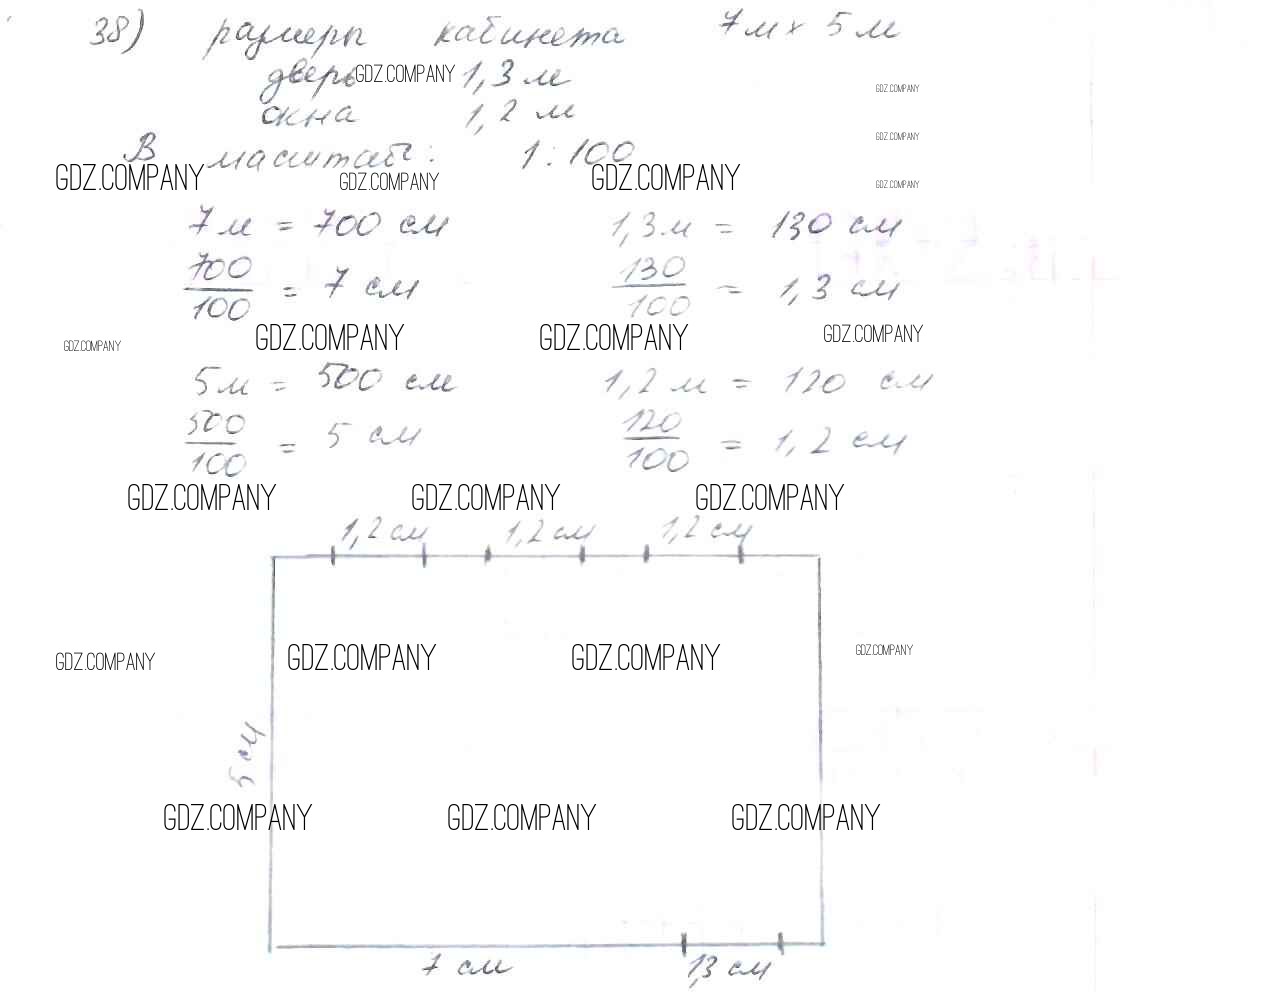 38) размеры кабинета 7 м x 5 м
дверь GDZ.COMPANY 1,3 м
GDZ.COMPANY
окна 1,2 м
GDZ.COMPANY
В масштабе: 1 : 100
GDZ.COMPANY GDZ.COMPANY GDZ.COMPANY GDZ.COMPANY
7 м = 700 см 1,3 м = 130 см
700/100 = 7 см 130/100 = 1,3 см
GDZ.COMPANY GDZ.COMPANY GDZ.COMPANY GDZ.COMPANY
5 м = 500 см 1,2 м = 120 см
500/100 = 5 см 120/100 = 1,2 см
GDZ.COMPANY GDZ.COMPANY GDZ.COMPANY
1,2 см 1,2 см 1,2 см
GDZ.COMPANY GDZ.COMPANY GDZ.COMPANY GDZ.COMPANY
5 см
GDZ.COMPANY GDZ.COMPANY GDZ.COMPANY
7 см 1,3 см